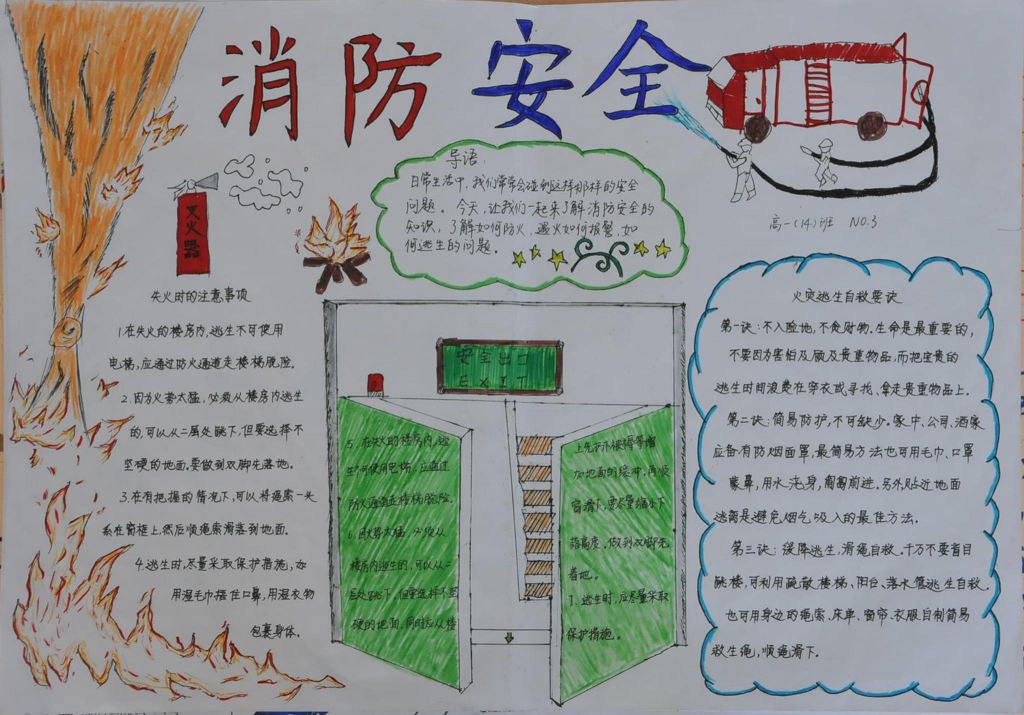 消防安全
高一(14)班 NO.3
导语:
日常生活中,我们常常会碰到这样那样的安全
问题。今天,让我们一起来了解消防安全的
知识,了解如何防火,遇火如何报警,如
何逃生的问题。
灭火器
失火时的注意事项
1.在失火的楼房内,逃生不可使用
电梯,应通过防火通道走楼梯脱险。
2.因为火势太猛,必须从楼房内逃生
的,可以从二层处跳下,但要选择不
坚硬的地面,要做到双脚先落地。
3.在有把握的情况下,可以将绳索一头
系在窗框上,然后顺绳索滑落到地面。
4.逃生时,尽量采取保护措施,如
用湿毛巾捂住口鼻,用湿衣物
包裹身体。
安全出口
EXIT
5.在失火的楼房内,逃
生不可使用电梯,应通过
防火通道走楼梯脱险。
6.因火势太猛,必须从
楼房内逃生的,可以从二
层处跳下,但要选择不坚
硬的地面,同时应从楼
上先扔下被褥等增
加地面的缓冲,再顺
窗滑下,要尽量缩小下
落高度,做到双脚先
着地。
7.逃生时,应尽量采取
保护措施。
火灾逃生自救要诀
第一诀:不入险地,不贪财物。生命是最重要的,
不要因为害怕及顾及贵重物品,而把宝贵的
逃生时间浪费在穿衣或寻找、拿走贵重物品上。
第二诀:简易防护,不可缺少。家中、公司、酒家
应备有防烟面罩,最简易方法也可用毛巾、口罩
蒙鼻,用水浇身,匍匐前进。另外贴近地面
逃离是避免烟气吸入的最佳方法。
第三诀:缓降逃生,滑绳自救。千万不要盲目
跳楼,可利用疏散楼梯、阳台、落水管逃生自救。
也可用身边的绳索、床单、窗帘、衣服自制简易
救生绳,顺绳滑下。